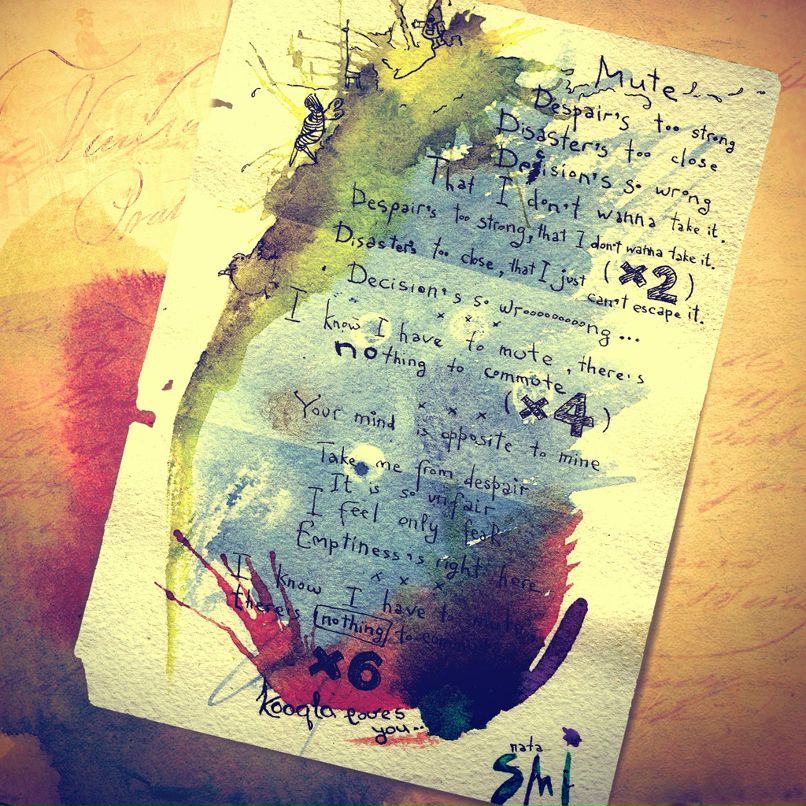 Mute
Despair's too strong
Disaster's too close
Decision's so wrong
That I don't wanna take it.
Despair's too strong, that I don't wanna take it.
Disaster's too close, that I just can't escape it.
(×2)
Decision's so wrooooooooong...
x x x
I know I have to mute, there's
nothing to commute
(×4)
x x x
Your mind is opposite to mine
Take me from despair
It is so unfair
I feel only fear
Emptiness is right here
x x x
I know I have to mute
there's nothing to commute
×6
kooqla loves
you...
nata
smi